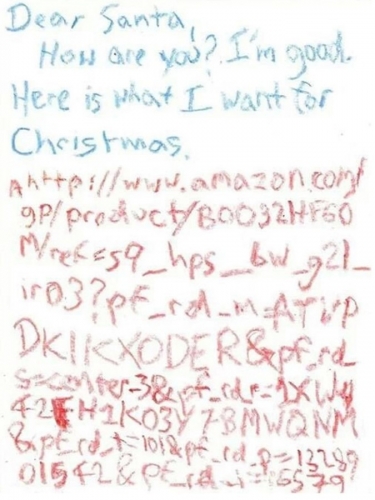 Dear Santa,
How are you? I'm good.
Here is what I want for
Christmas.
Ahttp://www.amazon.com/
gp/product/B0032HF60
M/ref=s9_hps_bw_g21_
ir03?pf_rd_m=ATVP
DKIKX0DER&pf_rd_
s=center-3&pf_rd_r=1XWY
42FH1K03Y7BMWQNM
&pf_rd_t=101&pf_rd_p=13289
01542&pf_rd_i=16579